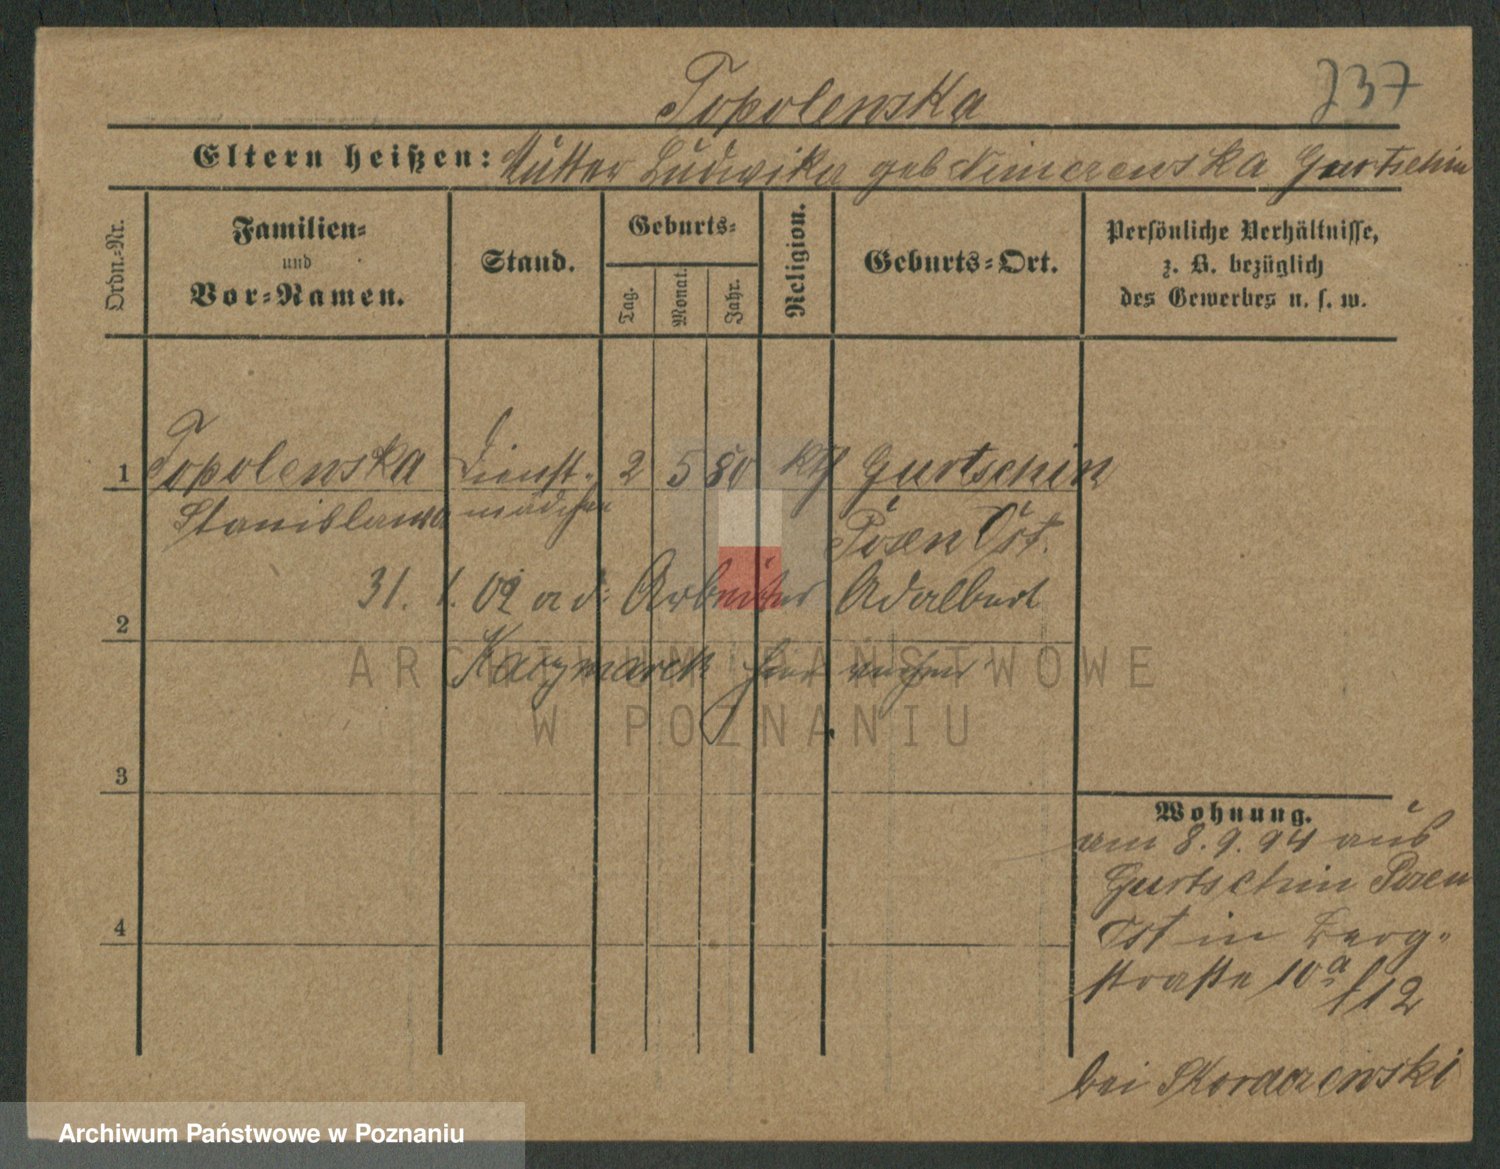 Topolenska
737
Eltern heißen: Mutter Ludwika geb Gurtschin
Ordn.-Nr.
Familien-
und
Vor-Namen.
Stand.
Geburts-
Tag.
Monat.
Jahr.
Religion.
Geburts-Ort.
Persönliche Verhältnisse,
z. B. bezüglich
des Gewerbes u. s. w.
1 Topolenska Dienst- 2 5 80 kth Gurtschin
Stanislawa mädchen Posen Ost.
31. 1. 02 ad: Arbeiter Adalbert
2
Kaczmarek hier
ARCHIWUM PAŃSTWOWE
W POZNANIU
3
Wohnung.
am 8. 9. 94 aus
Gurtschin Posen
4
Ost in Berg-
straße 10a f 12
bei Skoraczewski
Archiwum Państwowe w Poznaniu